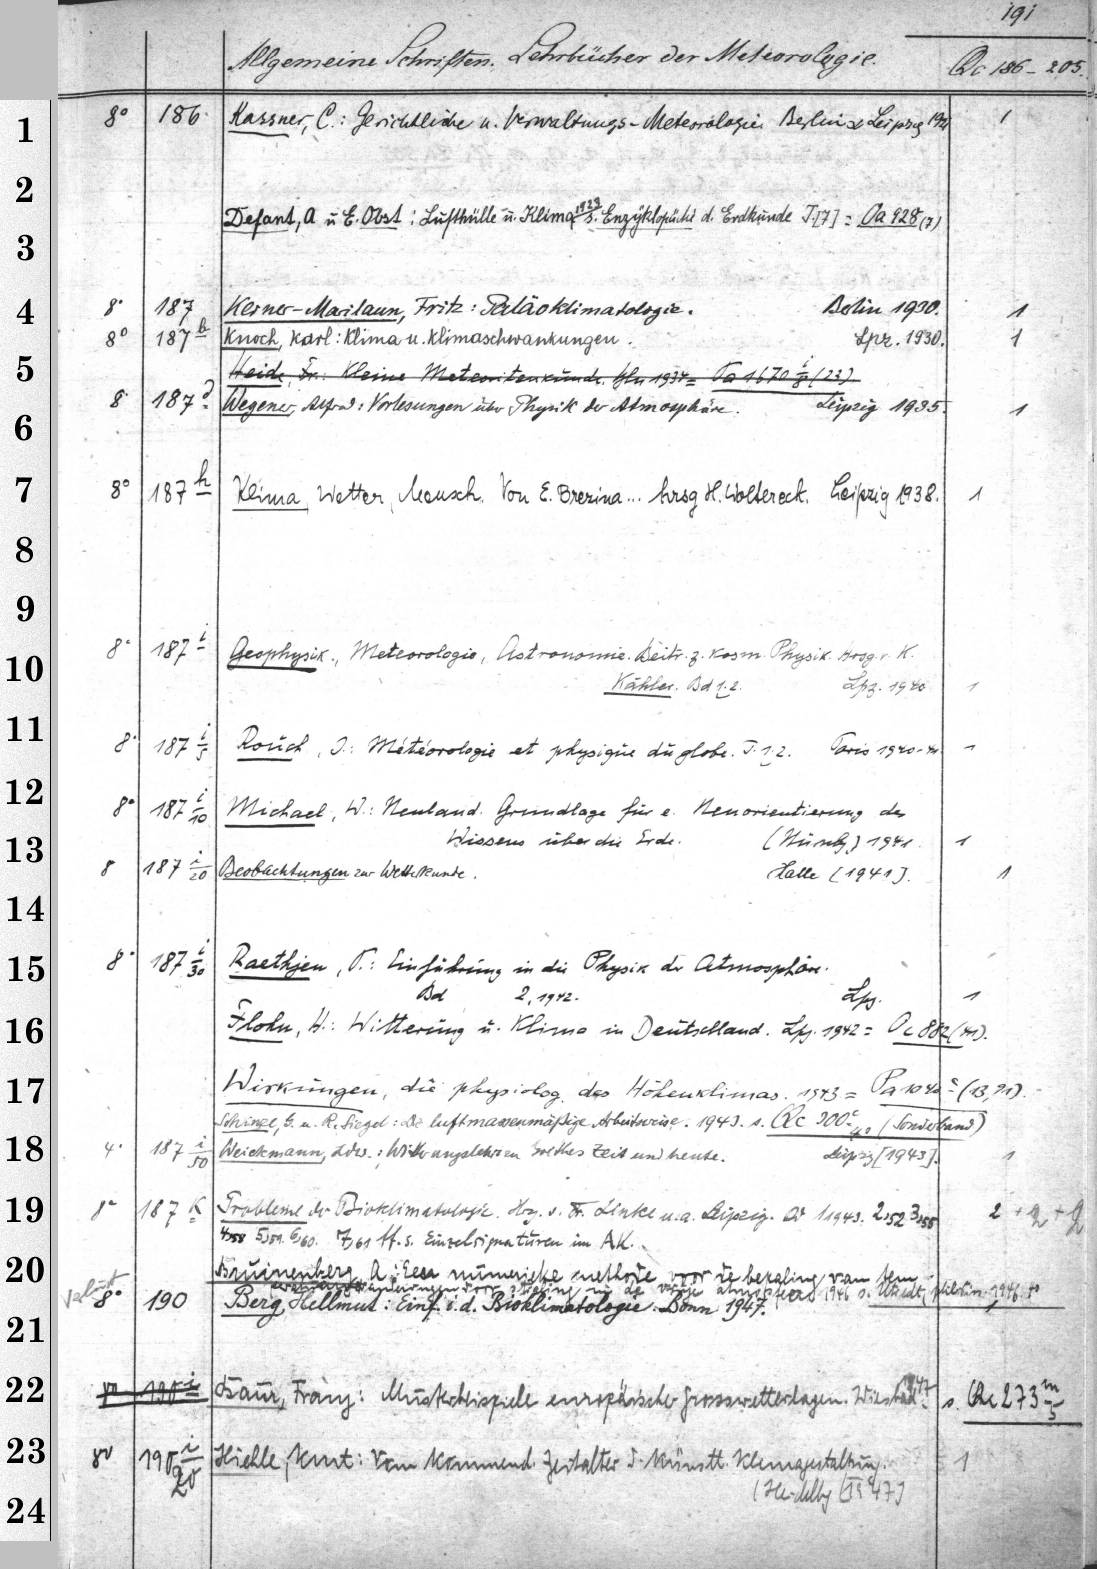 191
Allgemeine Schriften. Lehrbücher der Meteorologie. Qc 186-205.
1 8° 186 Kassner, C.: Gerichtliche u. Verwaltungs-Meteorologie. Berlin & Leipzig 1
2
Defant, A u. E. Obst: Lufthülle u. Klima 1923 s. Enzyklopädie d. Erdkunde T.[7] = Oa 928 (7)
3
4 8° 187 Kerner-Marilaun, Fritz: Paläoklimatologie. Berlin 1930. 1
8° 187 b Knoch, Karl: Klima u. Klimaschwankungen. Lpz. 1930. 1
5 Heide, Fr.: Kleine Meteoritenkunde. Bln 1934 = Pa 1670 i/8 (23)
8° 187 d Wegener, Alfred: Vorlesungen über Physik der Atmosphäre. Leipzig 1935. 1
6
7 8° 187 h Klima, Wetter, Mensch. Von E. Brezina... hrsg H. Woltereck. Leipzig 1938. 1
8
9
8° 187 i Geophysik., Meteorologie, Astronomie. Beitr. z. kosm. Physik. Hrsg. v. K.
10 Kähler. Bd 1.2. Lpz. 1940 1
11 8° 187 i/5 Rouch, J.: Météorologie et physique du globe. T. 1.2. Paris 1940-41 1
12 8° 187 i/10 Michael, W.: Neuland. Grundlage für e. Neuorientierung des
13 Wissens über die Erde. (Nürnbg) 1941. 1
8 187 i/20 Beobachtungen zur Wetterkunde. Halle [1941]. 1
14
15 8° 187 i/30 Raethjen, P.: Einführung in die Physik der Atmosphäre.
Bd 2, 1942. Lpz. 1
16 Flohn, H.: Witterung u. Klima in Deutschland. Lpz. 1942 = Oc 882 (41).
17 Wirkungen, die physiolog. des Höhenklimas. 1943 = Pa 1040 c (13,21).
Schinze, G. u. R. Siegel: Die luftmassenmäßige Arbeitsweise. 1943. s. Qc 300 c (Sonderband)
18 4° 187 i/50 Weickmann, Ludw.: Witterungslehre zu Goethes Zeit und heute. Leipzig [1943]. 1
19 8° 187 k Probleme der Bioklimatologie. Hrg. v. F. Linke u. a. Leipzig. Bd 1 1943. 2,52 3,55 2
4,58 5,59. 6,60. 7,61 ff. s. Einzelsignaturen im AK.
20 Bruinenberg, A: Een numerieke methode voor de bepaling van
Verlust 8° 190 Berg, Hellmut: Einf. i. d. Bioklimatologie. Bonn 1947.
21
22 190 i Baur, Franz: Musterbeispiele europäischer Grosswetterlagen. Wiesbad. 1947 s. Qc 273 m/5
23 8° 190 i/20 Hiehle, Kurt: Vom kommend. Zeitalter d. künstl. Klimagestaltung. 1
(Heidelbg [1947])
24